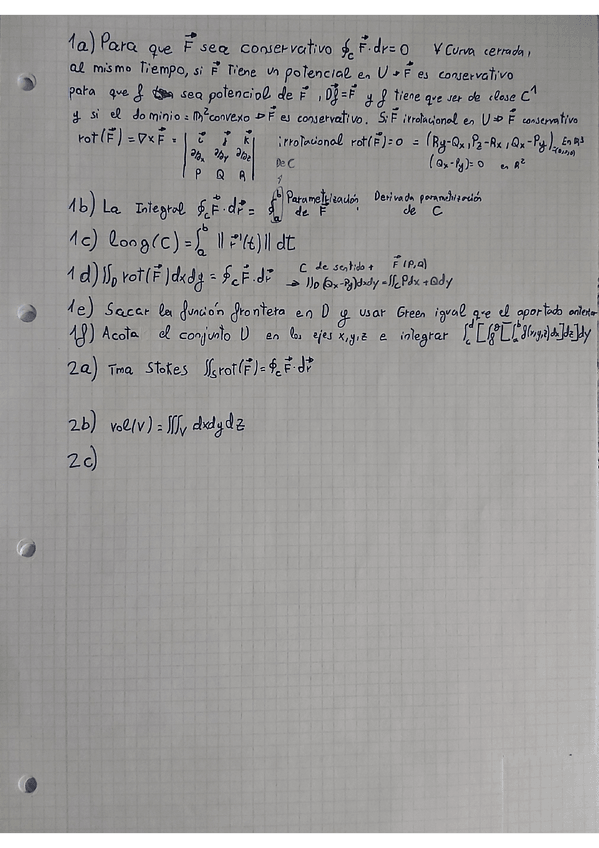 1a) Para que F⃗ sea conservativo ∮_C F⃗·dr=0 ∀ Curva cerrada,
al mismo tiempo, si F⃗ tiene un potencial en U → F⃗ es conservativo
para que f sea potencial de F⃗, Df⃗=F⃗ y f tiene que ser de clase C¹
y si el dominio = m² convexo ⇒ F⃗ es conservativo. Si F⃗ irrotacional en U ⇒ F⃗ conservativo
rot(F⃗) = ∇×F⃗ = | i⃗ j⃗ k⃗ | irrotacional rot(F⃗)=0 = (Ry-Qx, Pz-Rx, Qx-Py) En R³
| ∂/∂x ∂/∂y ∂/∂z | =(0,0,0)
| P Q R | De C (Qx-Py)=0 en R²
1b) La Integral ∮_C F⃗·dr⃗ = ∮_a^b Parametrización de F⃗ · Derivada parametrización de C
1c) long(C) = ∫_a^b ||r⃗'(t)|| dt
1d) ∬_D rot(F⃗)dxdy = ∮_C F⃗·dr⃗ C de sentido + F⃗(P,Q) → ∬_D (Qx-Py)dxdy = ∫_C Pdx+Qdy
1e) Sacar la función frontera en D y usar Green igual que el apartado anterior
1f) Acota el conjunto U en los ejes x,y,z e integrar ∫_c^d [∫ [∫_a^b f(x,y,z)dx]dz]dy
2a) Tma Stokes ∬_S rot(F⃗) = ∮_C F⃗·dr⃗
2b) vol(V) = ∭_V dxdydz
2c)